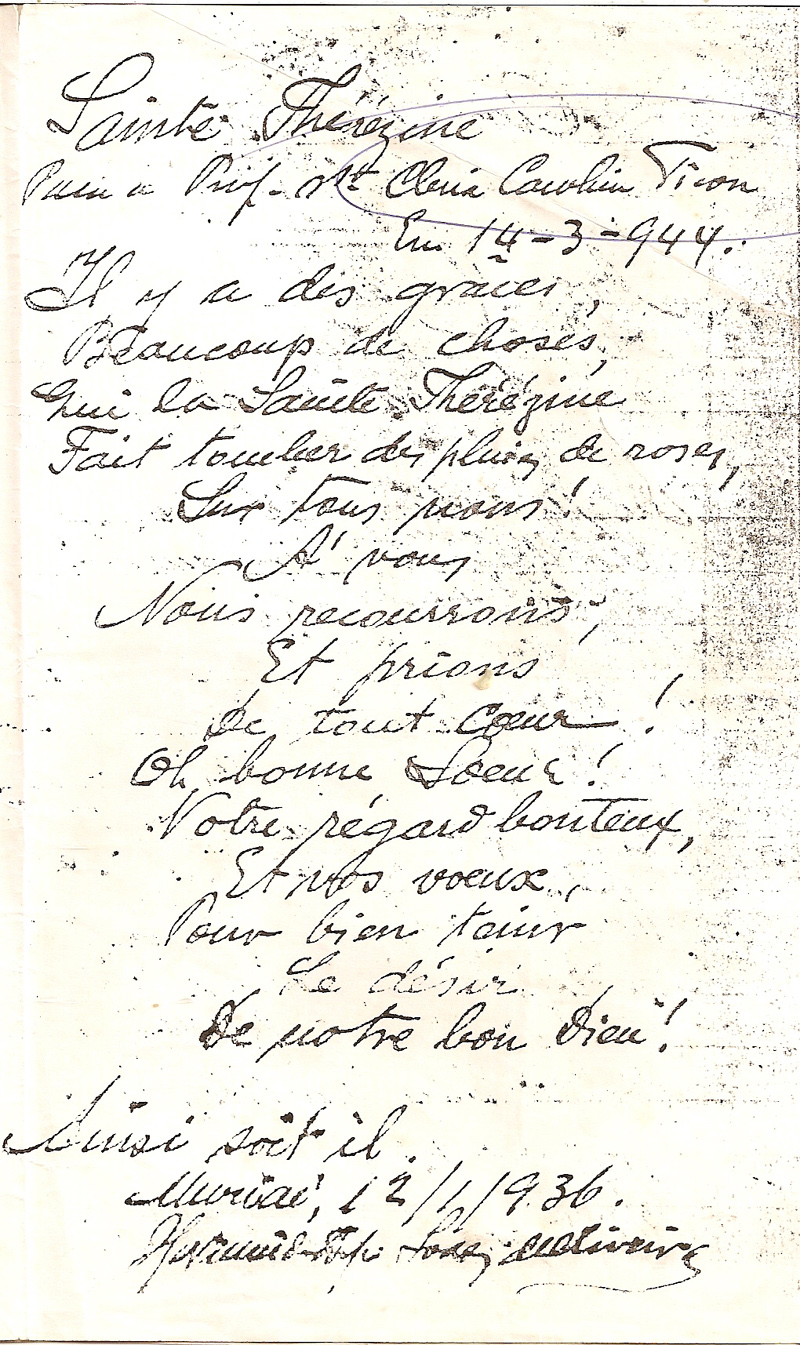 Sainte Thérézine
Para a Prof. Mlle
Em 14-3-944.
Il y a des grâces,
Beaucoup de choses,
Qui la Sainte Thérézine
Fait tomber des pluies de roses,
Sur tous nous!
A' vous
Nous recourrons,
Et prions
De tout cœur!
Oh bonne Soeur!
Votre régard bonteux,
Et vos voeux,
Pour bien
Le désir
De notre bon Dieu!
Ainsi soit il.
12/1/936.